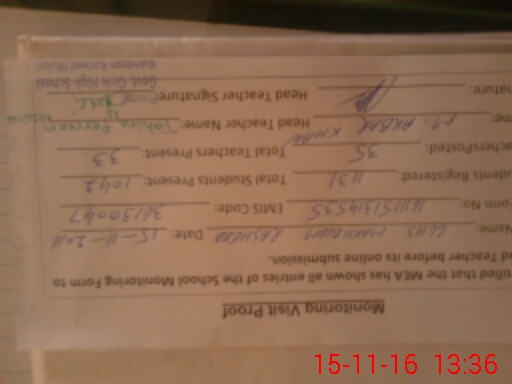 Monitoring Visit Proof
tified that the MEA has shown all entries of the School Monitoring Form to
ad Teacher before its online submission.
Name: GGHS MAKHDOOM RASHEED Date: 15-11-2016
orm No: EMIS Code: 36130047
udents Registered: 1131 Total Students Present: 1042
achersPosted: 35 Total Teachers Present: 33
me: M. AKBAR KHAN Head Teacher Name: Tahira Perveen
nature: Head Teacher Signature:
Govt. Girls High School
Makhdoom Rasheed
15-11-16 13:36